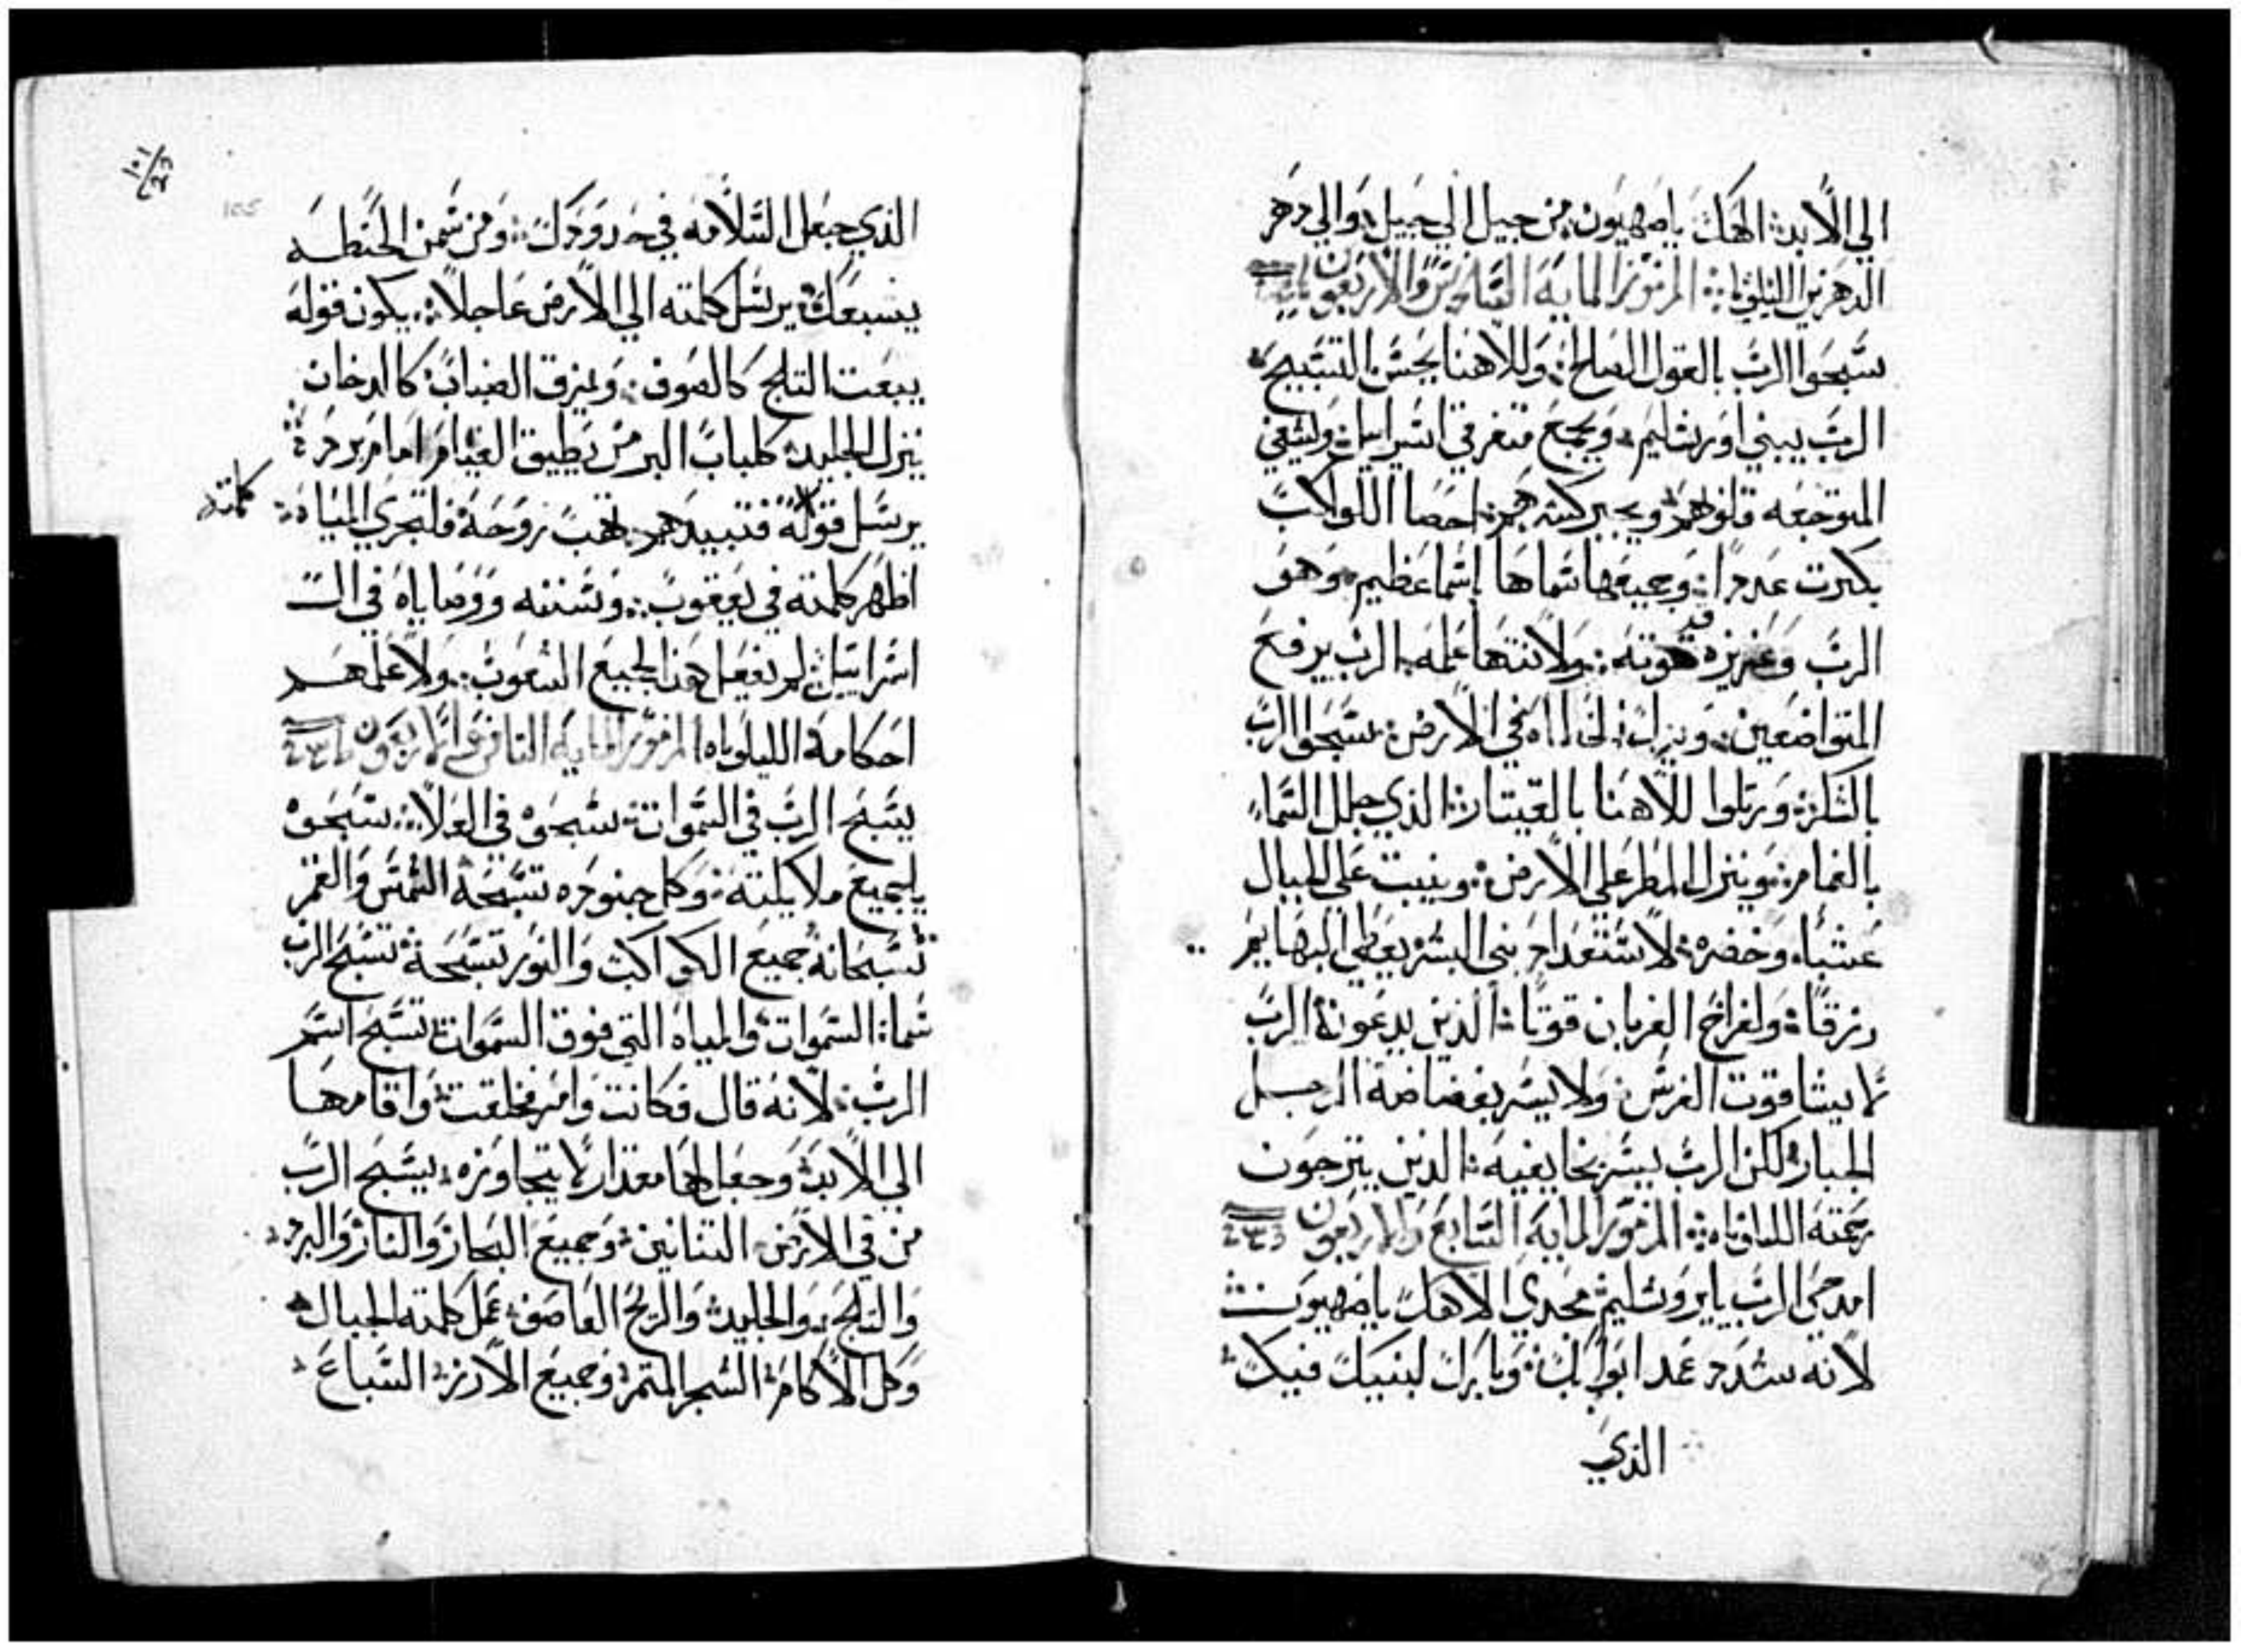 الي الابد: الهك ياصهيون من جيل الي جيل: والي دهر
الدهرين الليلويا: المزمور الماية السادس والاربعون
سبحوا الرب بالقول الصالح: وللاهنا يحسن التسبيح:
الرب يبني اورشليم: ويجمع متفرقي اسراييل: ويشفي
المتوجعه قلوبهم: ويجبر كسرهم: احصا الكواكب
بكترت عددا: وجميعها سماها اسما عظيم: وهو
الرب وعزيزه قوته: ولا نتها علمه: الرب يرفع
المتواضعين: ويذل الخطاه في الارض: سبحوا الرب
بالشكر: ورتلوا للاهنا بالقيتار: الذي جلل السماء
بالغمام: وينزل المطر علي الارض: وينبت علي الجبال
عشباً: وخضره: لاستنعداد بني البشر يعطي البهايم
رزقاً: ولفراخ الغربان قوتاً: الذين يدعونه الرب
لا يشا قوت الفرس: ولا يسر بغضاضة الرجل
الجبار: لكن الرب يسر بخايفيه: الذين يترجون
رحمته الليلوياه: المزمور الماية السابع والاربعون
امدحي الرب يايروشليم: مجدي الاهك ياصهيون
لانه شدد عمد ابوابك: وبارك لبنيك فيك:
الذي
الذي جعل السلامه في حدودك: ومن سمن الحنطه
يشبعك: يرسل كلمته الي الارض عاجلاً: يكون قوله
يبعت التلج كالصوف: ويمزق الضباب: كالدخان
ينزل الجليد: كلباب البر من يطيق القيام امام برده:
يرسل قوله فتبيدهم: تهب روحه فتجري المياه:
كلمته
اظهر كلمته في يعقوب: وسننه ووصاياه في ال
اسراييل: لم يفعل هذا بجميع الشعوب: ولا علمهم
احكامه الليلوياه المزمور الماية التامن والاربعون
يسبح الرب في السموات: سبحوه في العلا: سبحوه
ياجميع ملايكته: وكل جنوده تسبحه الشمس والقمر
تسبحانه جميع الكواكب والنور تسبحه: تسبح الرب
سما: السموات والمياه التي فوق السموات: تسبح اسم
الرب: لانه قال فكانت وامر فخلقت: واقامها
الي الابد: وجعل لها مقدار لا يتجاوزه: يسبح الرب
من في الارض: التنانين: وجميع البحار والنار والبرد:
والتلج: والجليد: والريح العاصف: عمل كلمته الجبال:
وكل الاكام: الشجر المتمر: وجميع الارز: السباع: